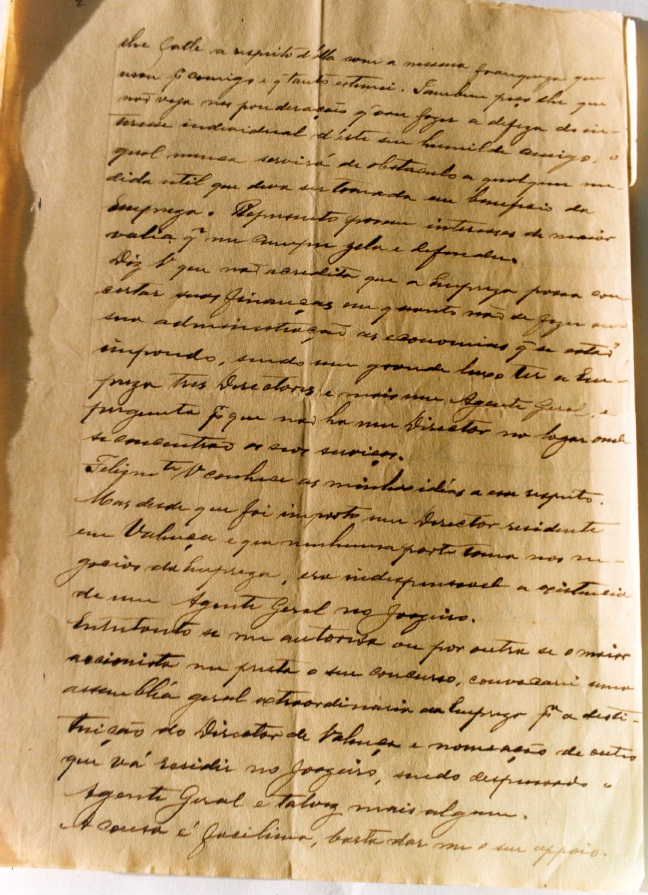 lhe falle a respeito d'ella com a mesma franqueza que
usou p.ª comigo e q̃ tanto estimei. Tambem peço lhe que
não veja nas ponderações q̃ vou fazer a defeza do in-
teresse individual d'éste seu humilde amigo, o
qual nunca servirá de obstaculo a qualquer me-
dida util que deva ser tomada em beneficio da
Empreza. Represento porem interesses de maior
valia q̃ me cumpre zelar e defender.
Diz V que não acredita que a Empreza possa con
certar suas finanças em quanto não se fizer em
sua administração as economias q̃ se estão
impondo, sendo um grande luxo ter a Em-
preza tres Directores e mais um Agente Geral, e
pergunta p.r que não ha um Director no logar onde
se encontrão os seus serviços.
Felizm.te V conhece as minhas idéias a esse respeito.
Mas desde que foi imposto um Director residente
em Valença e que nenhuma parte toma nos ne-
gocios da Empreza, era indispensavel a existencia
de um Agente Geral no Joazeiro.
Entretanto se me autorisa ou por outra se o maior
accionista me presta o seu concurso, convocarei uma
assembléa geral extraordinaria da Empreza p.ª a desti-
tuição do Director de Valença e nomeação de outro
que vá residir no Joazeiro, sendo dispensado o
Agente Geral e talvez mais algum.
A cousa é facilima, basta dar me o seu appoio.